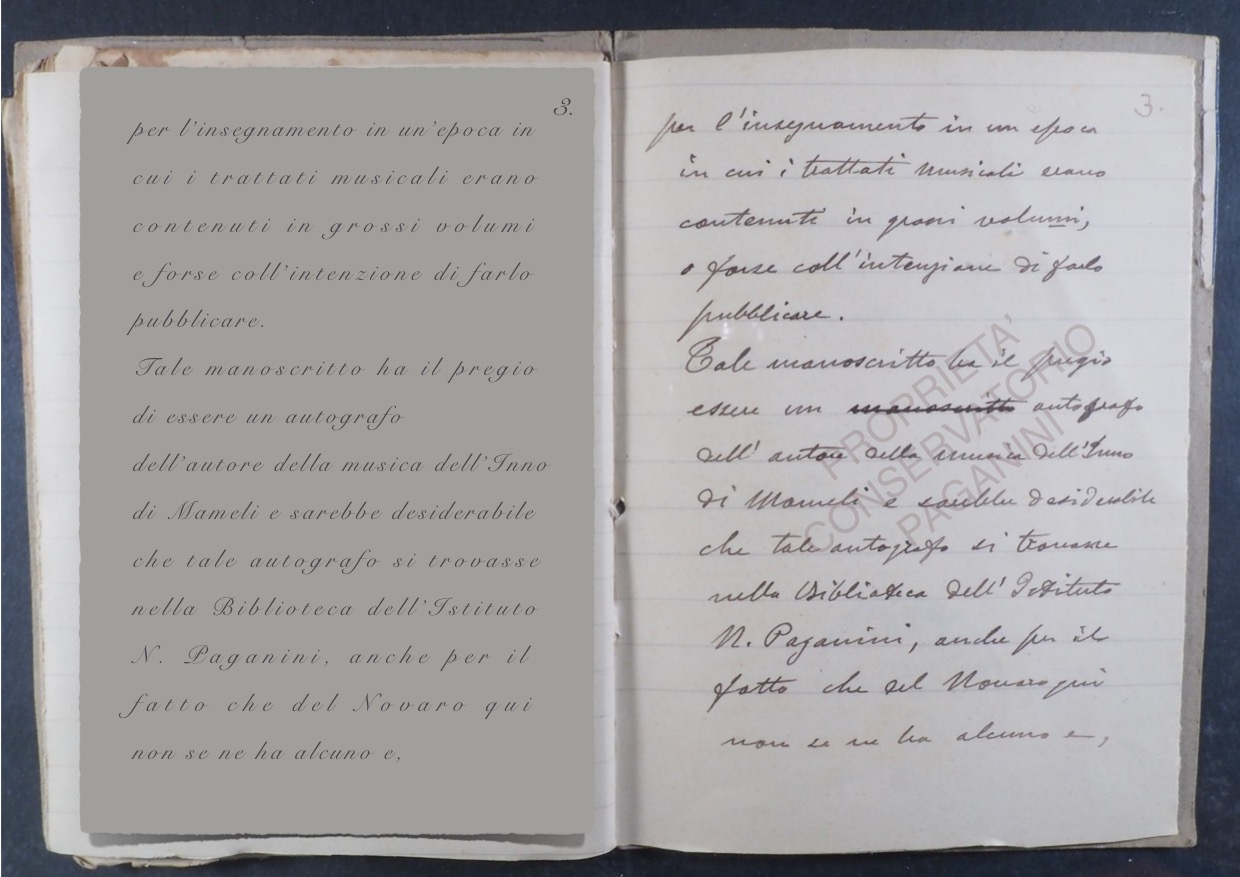 3.
per l'insegnamento in un'epoca in
cui i trattati musicali erano
contenuti in grossi volumi
e forse coll'intenzione di farlo
pubblicare.
Tale manoscritto ha il pregio
di essere un autografo
dell'autore della musica dell'Inno
di Mameli e sarebbe desiderabile
che tale autografo si trovasse
nella Biblioteca dell'Istituto
N. Paganini, anche per il
fatto che del Novaro qui
non se ne ha alcuno e,
3.
per l'insegnamento in un epoca
in cui i trattati musicali erano
contenuti in grossi volumi,
o forse coll'intenzione di farlo
pubblicare.
Tale manoscritto ha il pregio
essere un manoscritto autografo
dell' autore della musica dell'Inno
di Mameli e sarebbe desiderabile
che tale autografo si trovasse
nella Biblioteca dell' Istituto
N. Paganini, anche per il
fatto che del Novaro qui
non se ne ha alcuno e,
PROPRIETA'
CONSERVATORIO
PAGANINI